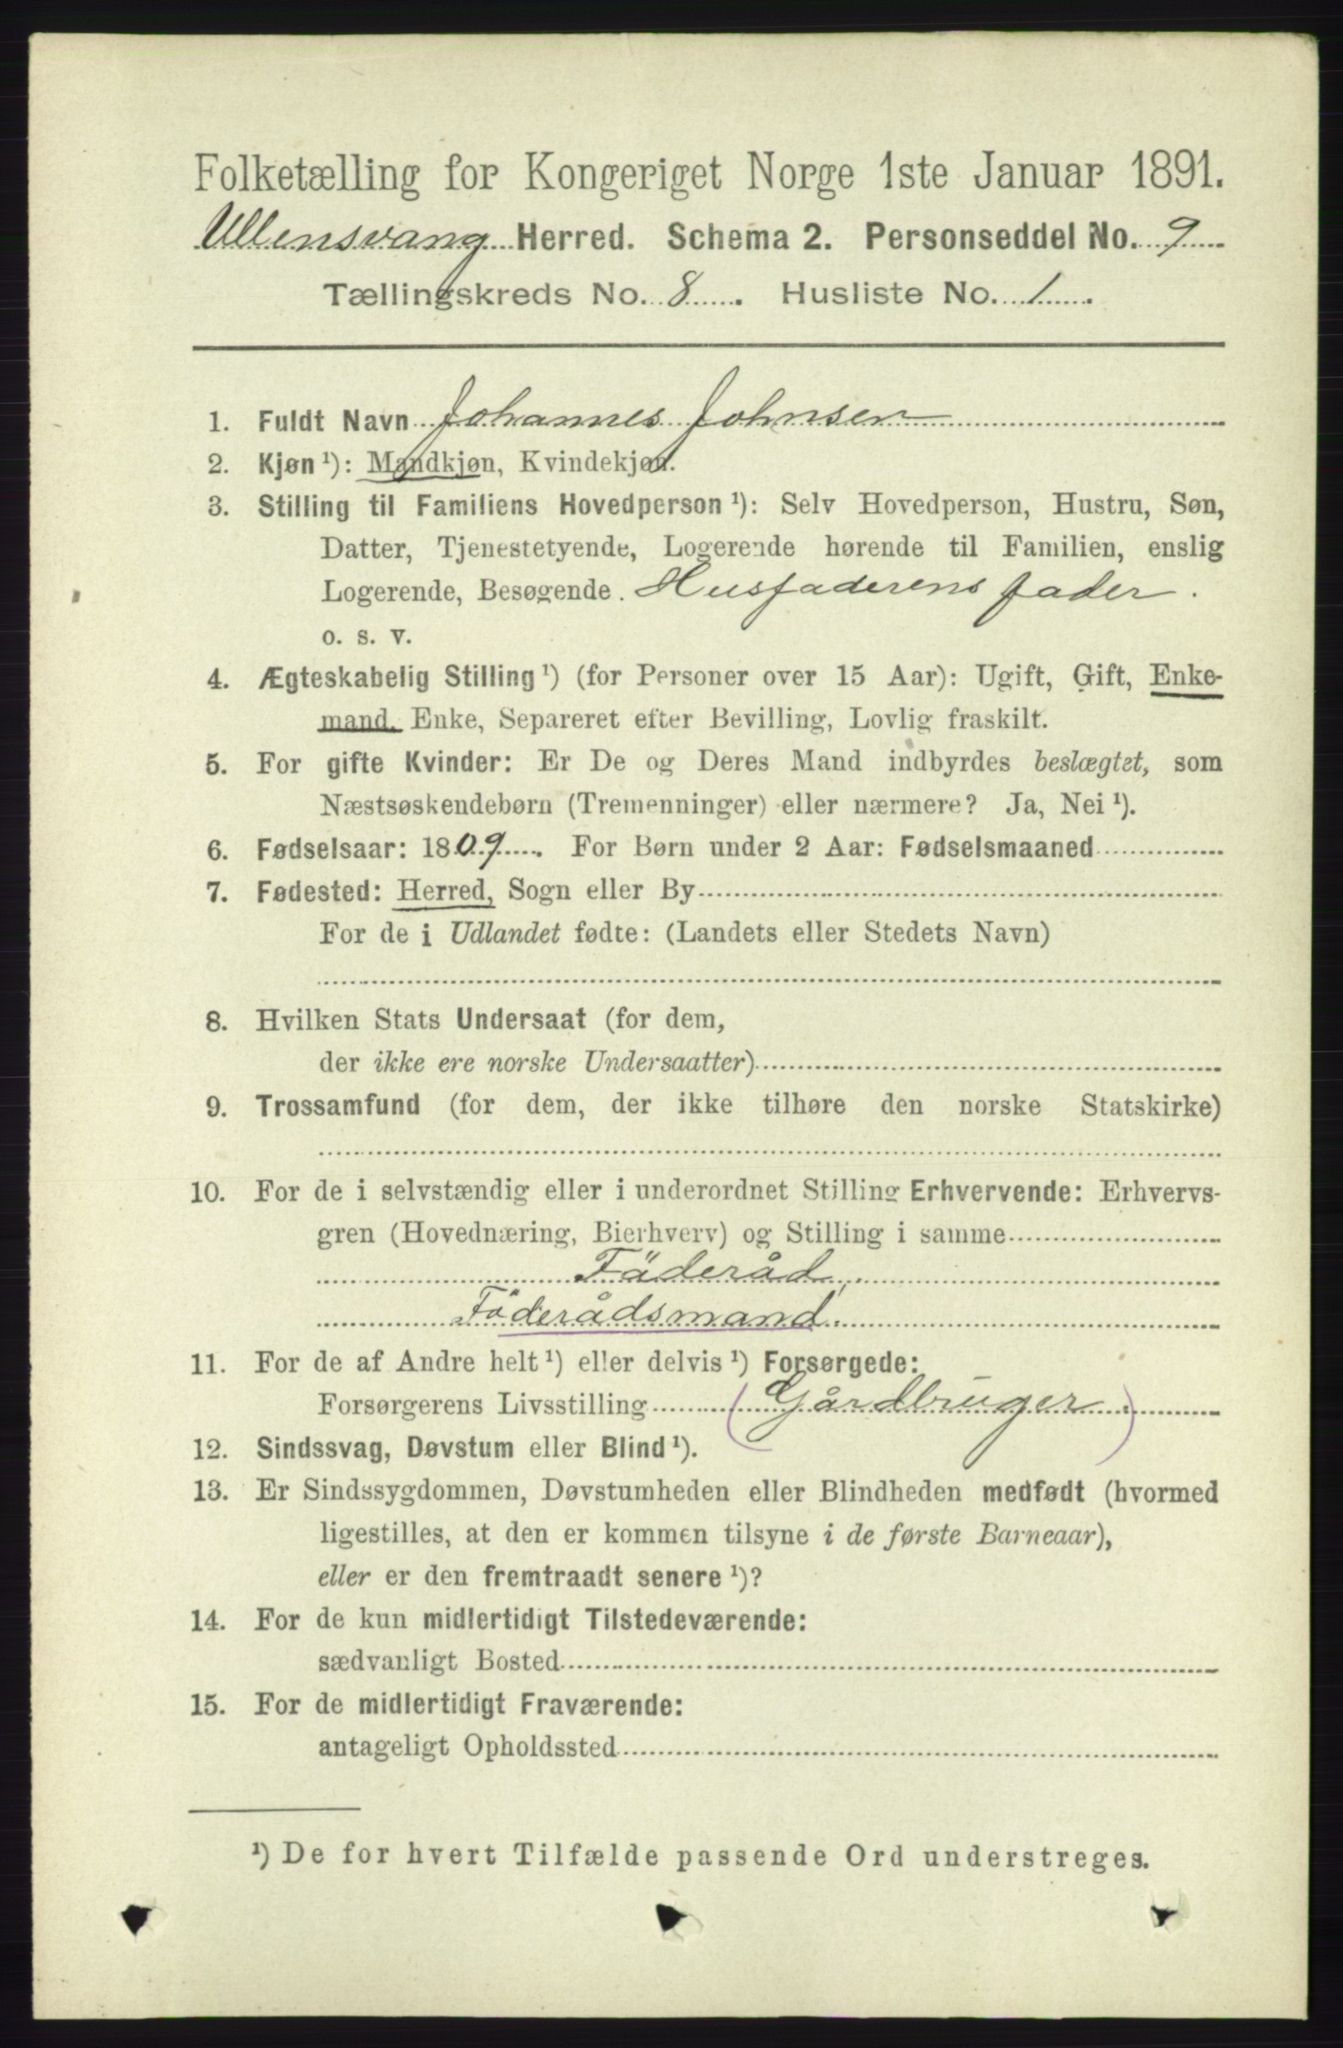 Folketælling for Kongeriget Norge 1ste Januar 1891.
Ullensvang Herred. Schema 2. Personseddel No. 9
Tællingskreds No. 8. Husliste No. 1.
1. Fuldt Navn Johannes Johnsen
2. Kjøn ¹): Mandkjøn, Kvindekjøn.
3. Stilling til Familiens Hovedperson ¹): Selv Hovedperson, Hustru, Søn,
Datter, Tjenestetyende, Logerende hørende til Familien, enslig
Logerende, Besøgende. Husfaderens fader.
o. s. v.
4. Ægteskabelig Stilling ¹) (for Personer over 15 Aar): Ugift, Gift, Enke-
mand, Enke, Separeret efter Bevilling, Lovlig fraskilt.
5. For gifte Kvinder: Er De og Deres Mand indbyrdes beslægtet, som
Næstsøskendebørn (Tremenninger) eller nærmere? Ja, Nei ¹).
6. Fødselsaar: 1809. For Børn under 2 Aar: Fødselsmaaned
7. Fødested: Herred, Sogn eller By
For de i Udlandet fødte: (Landets eller Stedets Navn)
8. Hvilken Stats Undersaat (for dem,
der ikke ere norske Undersaatter)
9. Trossamfund (for dem, der ikke tilhøre den norske Statskirke)
10. For de i selvstændig eller i underordnet Stilling Erhvervende: Erhvervs-
gren (Hovednæring, Bierhverv) og Stilling i samme
Föderåd,
Föderådsmand.
11. For de af Andre helt ¹) eller delvis ¹) Forsørgede:
Forsørgerens Livsstilling (Gårdbruger)
12. Sindssvag, Døvstum eller Blind ¹).
13. Er Sindssygdommen, Døvstumheden eller Blindheden medfødt (hvormed
ligestilles, at den er kommen tilsyne i de første Barneaar),
eller er den fremtraadt senere ¹)?
14. For de kun midlertidigt Tilstedeværende:
sædvanligt Bosted
15. For de midlertidigt Fraværende:
antageligt Opholdssted
¹) De for hvert Tilfælde passende Ord understreges.